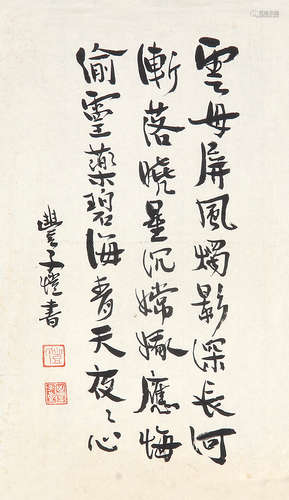 雲母屏風燭影深長河
漸落曉星沉嫦娥應悔
偷靈藥碧海青天夜〻心
豐子愷書